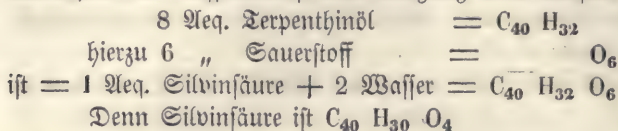 8 Aeq. Terpenthinöl = C₄₀ H₃₂
hierzu 6 „ Sauerstoff = O₆
ist = 1 Aeq. Silvinsäure + 2 Wasser = C₄₀ H₃₂ O₆
Denn Silvinsäure ist C₄₀ H₃₀ O₄